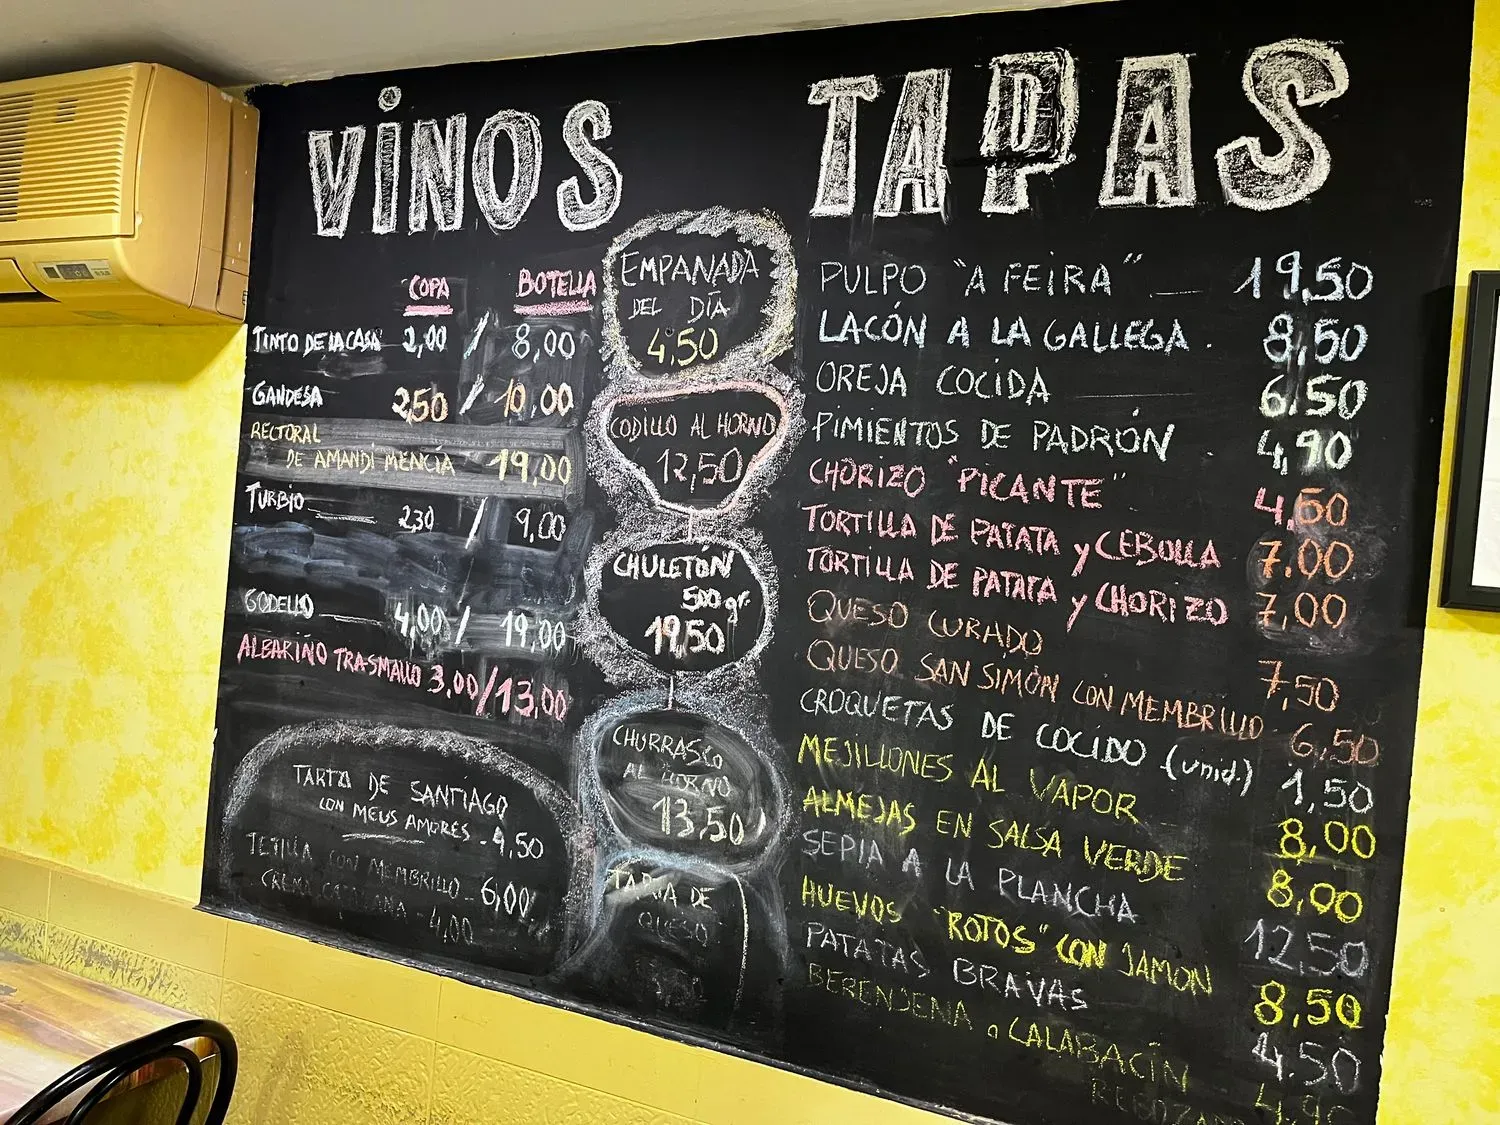 VINOS
COPA BOTELLA
TINTO DE LA CASA 2,00 / 8,00
GANDESA 2,50 / 10,00
RECTORAL
DE AMANDI MENCIA 19,00
TURBIO 2,30 / 9,00
GODELLO 4,00 / 19,00
ALBARIÑO TRASMALLO 3,00/13,00
TARTA DE SANTIAGO
CON MEUS AMORES - 4,50
TETILLA CON MEMBRILLO - 6,00
CREMA CATALANA - 4.00
EMPANADA
DEL DÍA
4,50
CODILLO AL HORNO
12,50
CHULETÓN
500 gr.
19,50
CHURRASCO
AL HORNO
13,50
TARTA DE
QUESO
TAPAS
PULPO "A FEIRA" 19,50
LACÓN A LA GALLEGA . 8,50
OREJA COCIDA 6,50
PIMIENTOS DE PADRÓN 4,90
CHORIZO "PICANTE" 4,50
TORTILLA DE PATATA y CEBOLLA 7,00
TORTILLA DE PATATA y CHORIZO 7,00
QUESO CURADO 7,50
QUESO SAN SIMÓN CON MEMBRILLO 6,50
CROQUETAS DE COCIDO (unid.) 1,50
MEJILLONES AL VAPOR 8,00
ALMEJAS EN SALSA VERDE 8,00
SEPIA A LA PLANCHA 12,50
HUEVOS "ROTOS" CON JAMON 8,50
PATATAS BRAVAS 4.50
BERENJENA o CALABACÍN